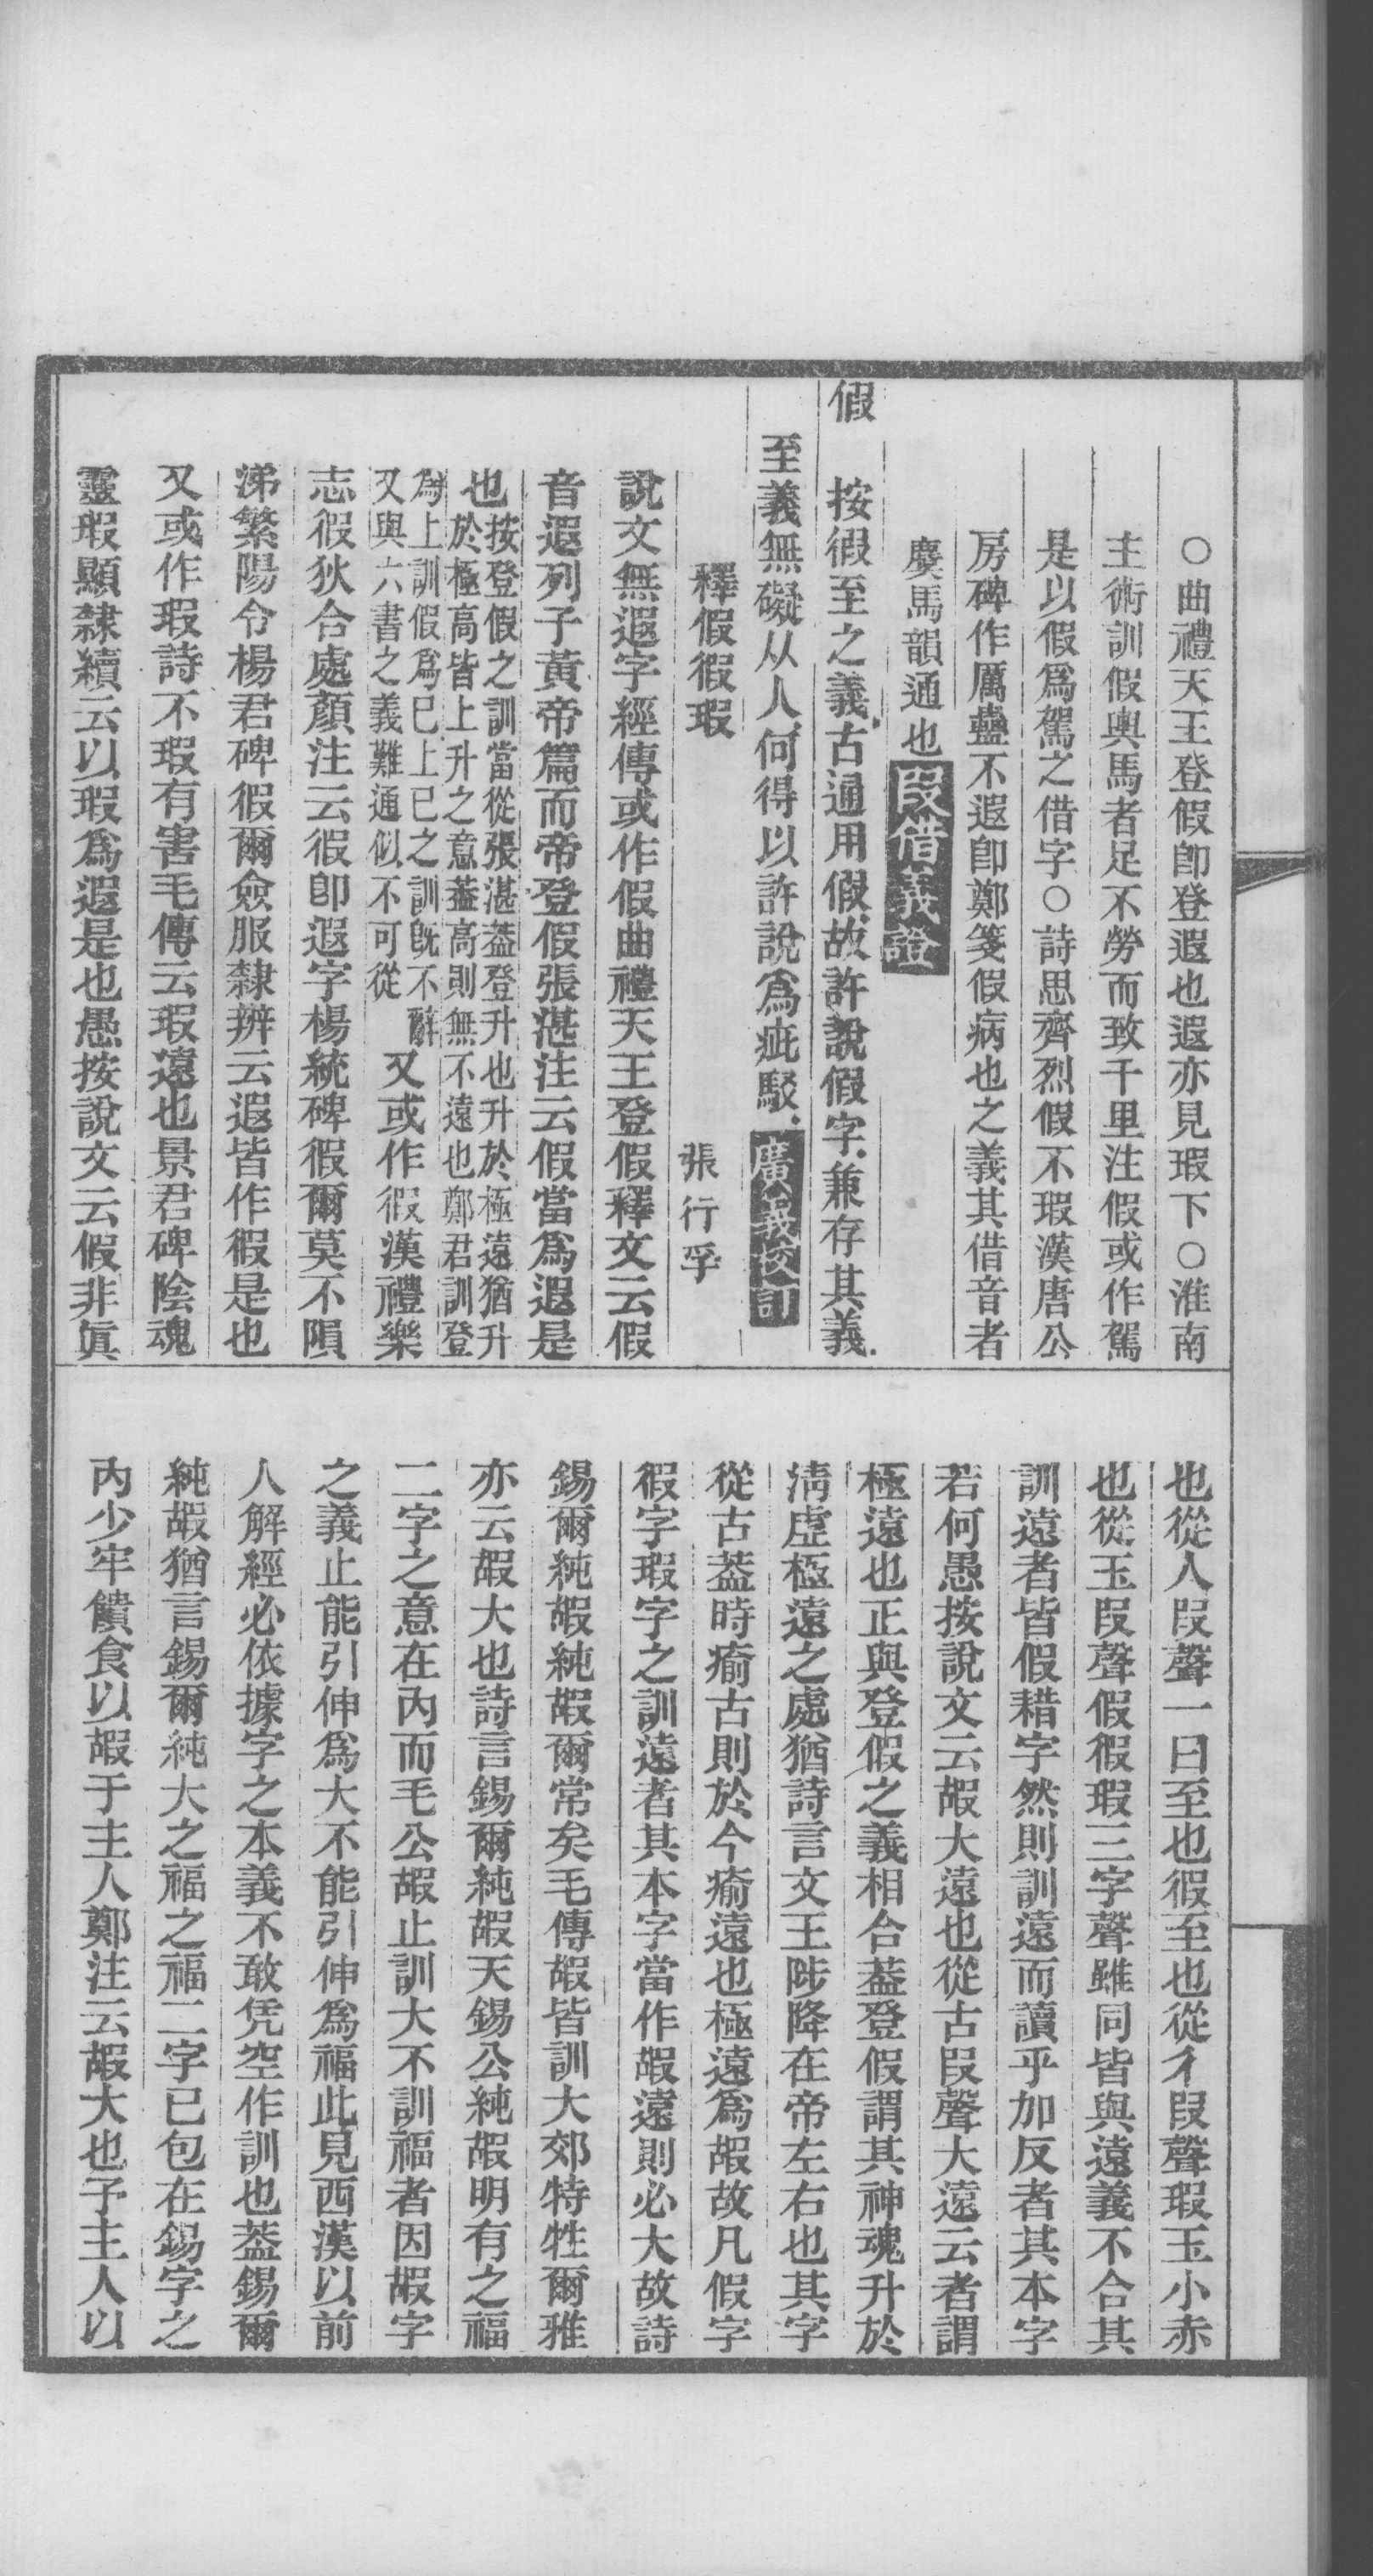 ○曲禮天王登假卽登遐也遐亦見瑕下○淮南
主術訓假輿馬者足不勞而致千里注假或作駕
是以假爲駕之借字○詩思齊烈假不瑕漢唐公
房碑作厲蠱不遐卽鄭箋假病也之義其借音者
麌馬韻通也叚借義證
假　按徦至之義古通用假故許說假字兼存其義
至義無礙从人何得以許說爲疵駁廣義校訂
釋假徦瑕　張行孚
說文無遐字經傳或作假曲禮天王登假釋文云假
音遐列子黃帝篇而帝登假張湛注云假當爲遐是
也按登假之訓當從張湛葢登升也升於極遠猶升
於極高皆上升之意葢高則無不遠也鄭君訓登
爲上訓假爲已上已之訓旣不辭
又與六書之義難通似不可從又或作徦漢禮樂
志徦狄合處顏注云徦卽遐字楊統碑徦爾莫不隕
涕繁陽令楊君碑徦爾僉服隸辨云遐皆作徦是也
又或作瑕詩不瑕有害毛傳云瑕遠也景君碑陰魂
靈瑕顯隸續云以瑕爲遐是也愚按說文云假非眞
也從人叚聲一曰至也徦至也從彳叚聲瑕玉小赤
也從玉叚聲假徦瑕三字聲雖同皆與遠義不合其
訓遠者皆假耤字然則訓遠而讀乎加反者其本字
若何愚按說文云嘏大遠也從古叚聲大遠云者謂
極遠也正與登假之義相合葢登假謂其神魂升於
淸虛極遠之處猶詩言文王陟降在帝左右也其字
從古葢時瘉古則於今瘉遠也極遠爲嘏故凡假字
徦字瑕字之訓遠者其本字當作嘏遠則必大故詩
錫爾純嘏純嘏爾常矣毛傳嘏皆訓大郊特牲爾雅
亦云嘏大也詩言錫爾純嘏天錫公純嘏明有之福
二字之意在內而毛公嘏止訓大不訓福者因嘏字
之義止能引伸爲大不能引伸爲福此見西漢以前
人解經必依據字之本義不敢凭空作訓也葢錫爾
純嘏猶言錫爾純大之福之福二字已包在錫字之
內少牢饋食以嘏于主人鄭注云嘏大也予主人以